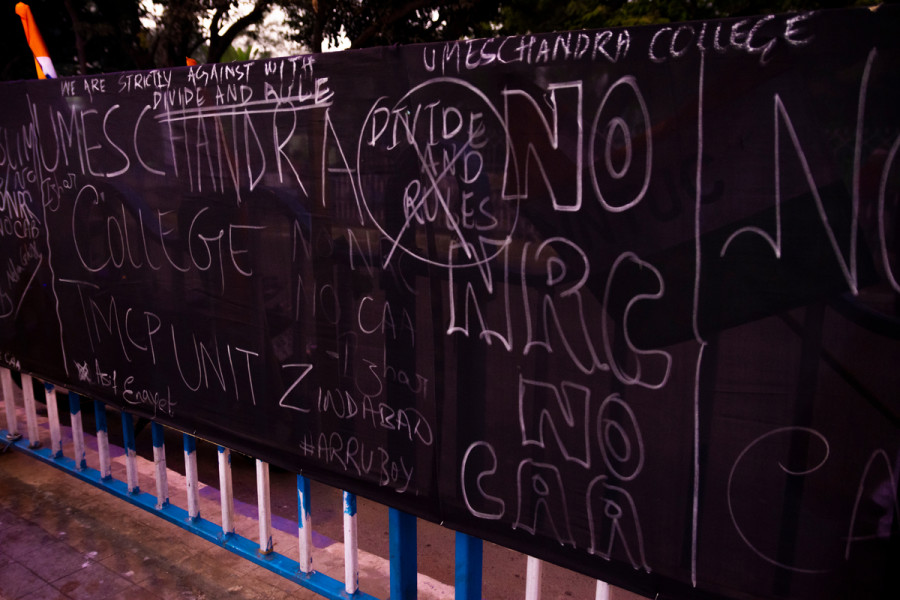 WE ARE STRICTLY AGAINST WITH
DIVIDE AND RULE
UMESCHANDRA
COLLEGE
TMCP UNIT
ZINDABAD
#ARRUBOY
Asif Enayet
NO N
NO CAA
Izhar
UMESCHANDRA COLLEGE
DIVIDE
AND
RULES
NO
NRC
NO
CAA
NO CAB